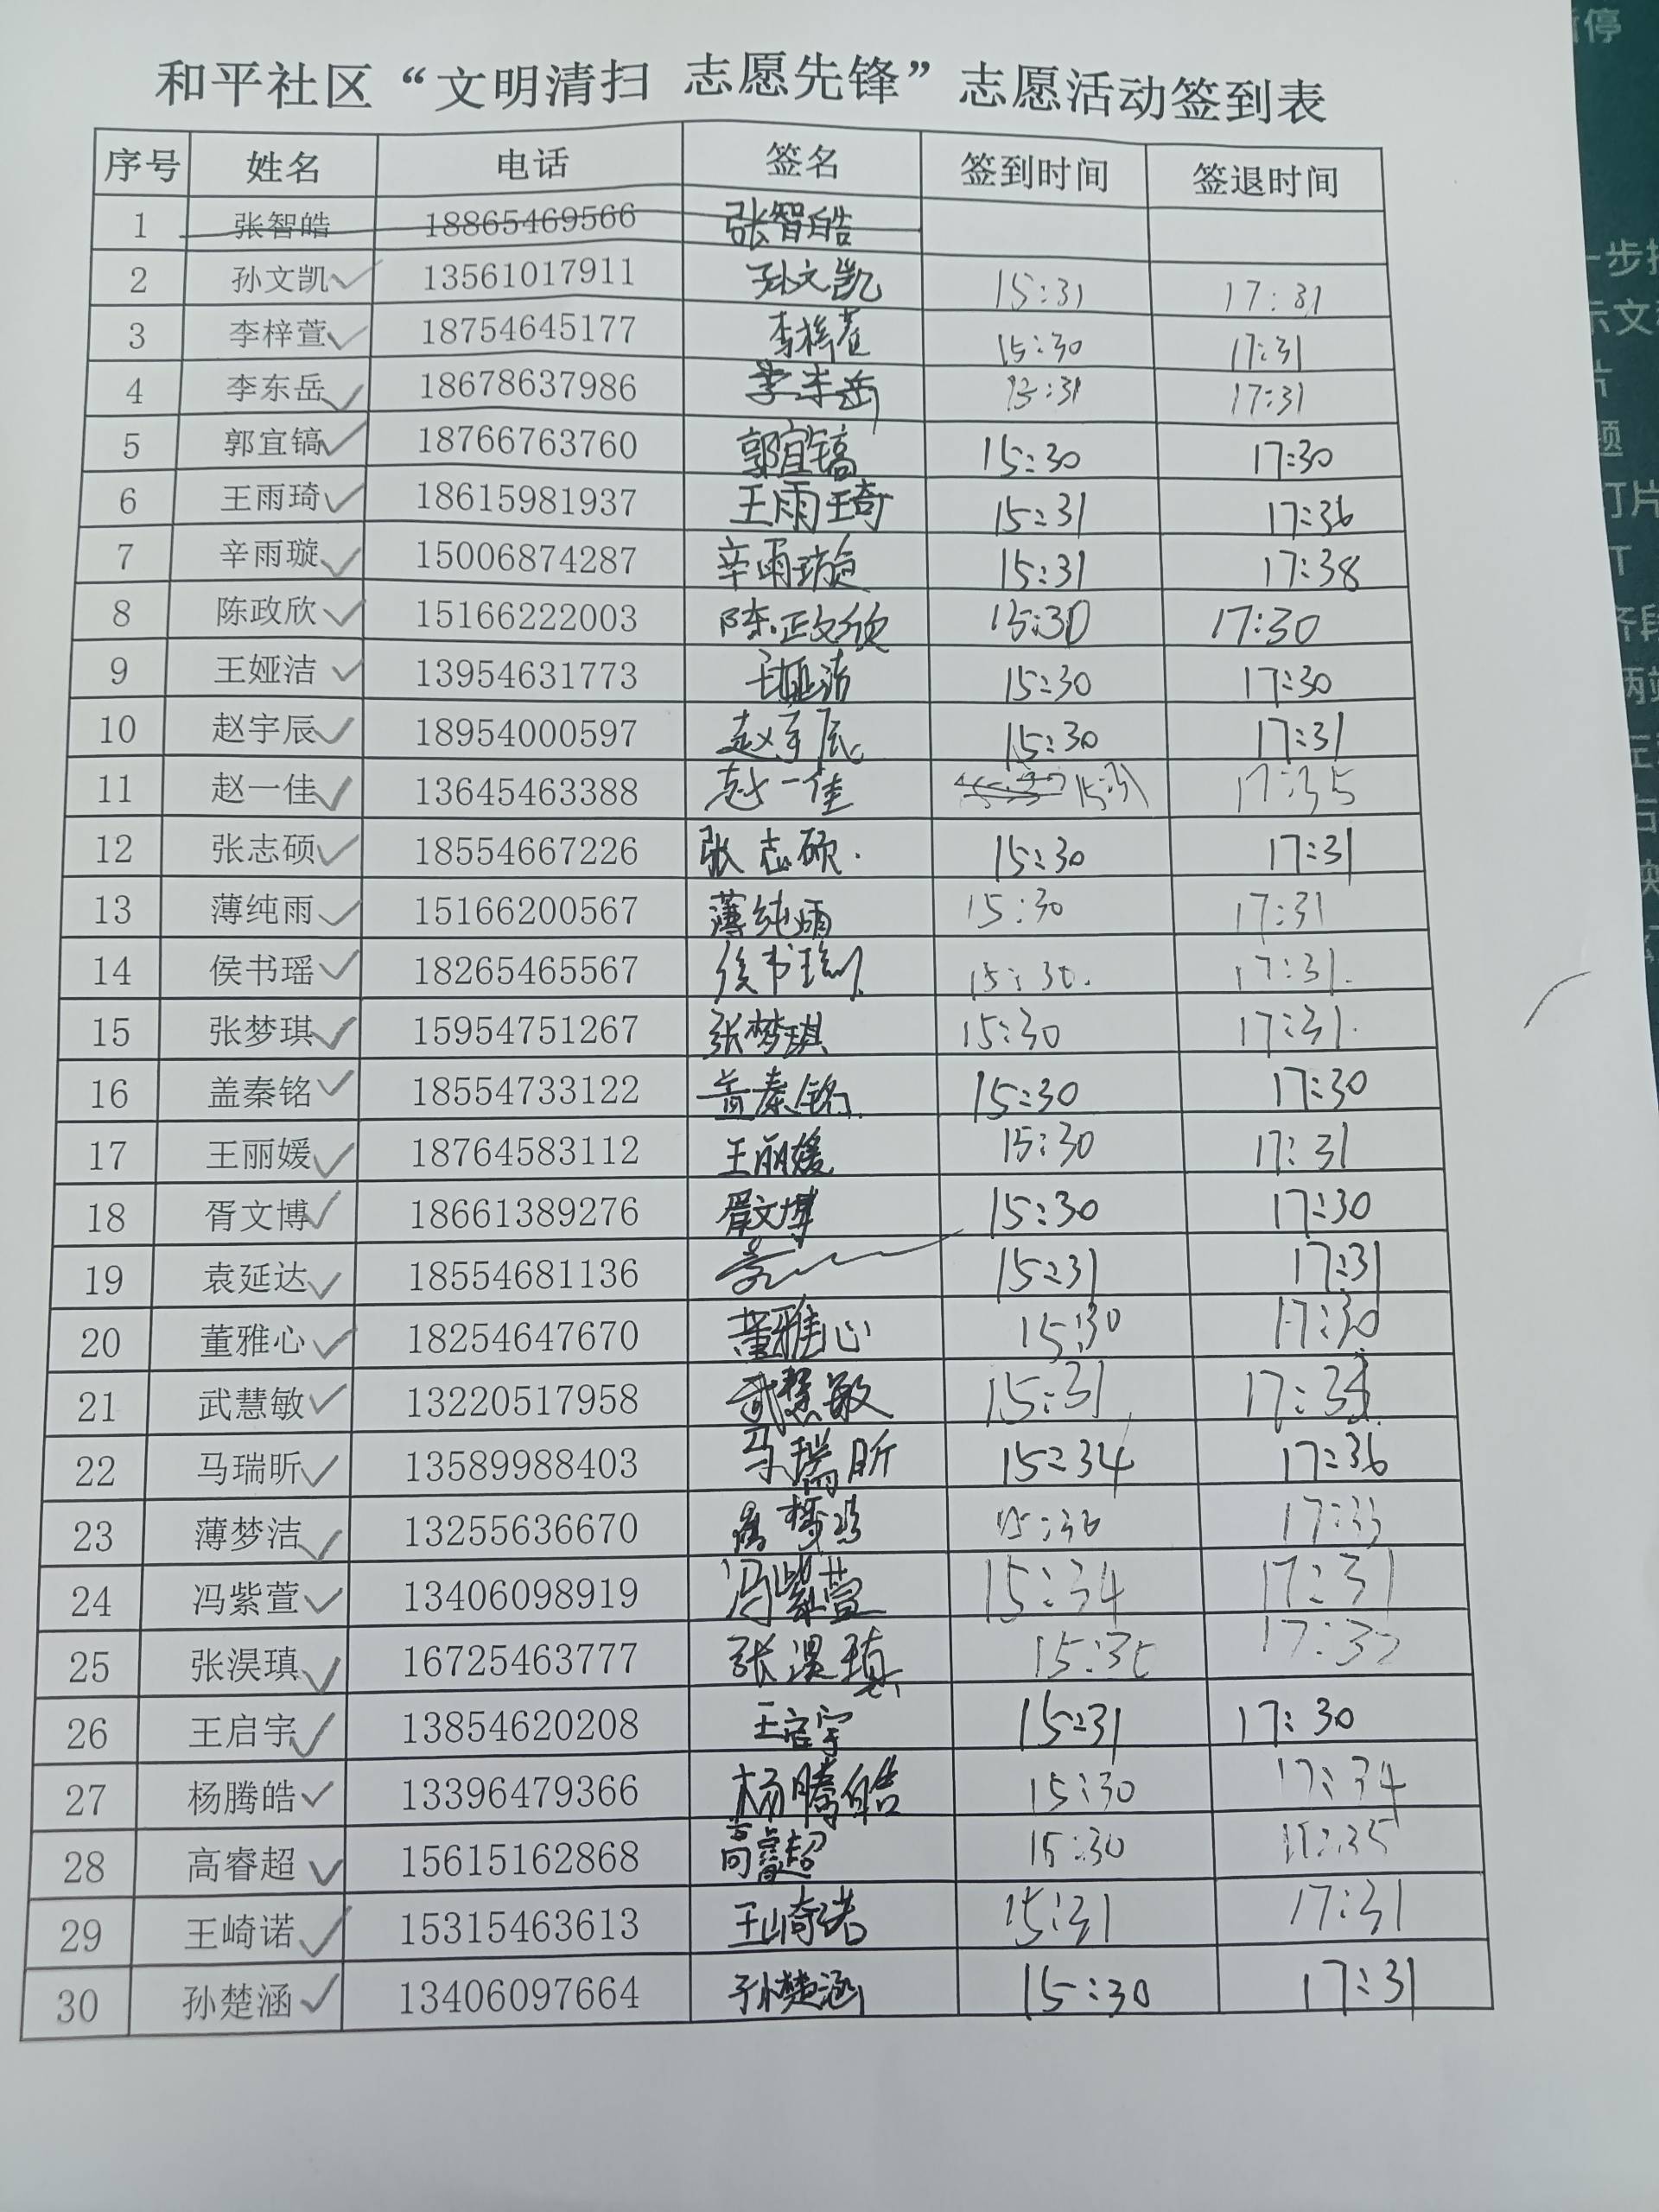 和平社区“文明清扫 志愿先锋”志愿活动签到表
序号 姓名 电话 签名 签到时间 签退时间
1 张智皓 18865469566 张智皓
2 孙文凯 13561017911 孙文凯 15:31 17:31
3 李梓萱 18754645177 李梓萱 15:30 17:31
4 李东岳 18678637986 李东岳 15:31 17:31
5 郭宜镐 18766763760 郭宜镐 15:30 17:30
6 王雨琦 18615981937 王雨琦 15:31 17:36
7 辛雨璇 15006874287 辛雨璇 15:31 17:38
8 陈政欣 15166222003 陈政欣 15:30 17:30
9 王娅洁 13954631773 王娅洁 15:30 17:30
10 赵宇辰 18954000597 赵宇辰 15:30 17:31
11 赵一佳 13645463388 赵一佳 15:31 17:35
12 张志硕 18554667226 张志硕. 15:30 17:31
13 薄纯雨 15166200567 薄纯雨 15:30 17:31
14 侯书瑶 18265465567 侯书瑶 15:30. 17:31.
15 张梦琪 15954751267 张梦琪 15:30 17:31.
16 盖秦铭 18554733122 盖秦铭 15:30 17:30
17 王丽媛 18764583112 王丽媛 15:30 17:31
18 胥文博 18661389276 胥文博 15:30 17:30
19 袁延达 18554681136 15:31 17:31
20 董雅心 18254647670 董雅心 15:30 17:30
21 武慧敏 13220517958 武慧敏 15:31
22 马瑞昕 13589988403 马瑞昕 15:34 17:36
23 薄梦洁 13255636670 薄梦洁 15:36 17:33
24 冯紫萱 13406098919 冯紫萱 15:34 17:31
25 张淏瑱 16725463777 张淏瑱
26 王启宇 13854620208 王启宇 15:31 17:30
27 杨腾皓 13396479366 杨腾皓 15:30 17:34
28 高睿超 15615162868 高睿超 15:30
29 王崎诺 15315463613 王崎诺 15:31 17:31
30 孙楚涵 13406097664 孙楚涵 15:30 17:31